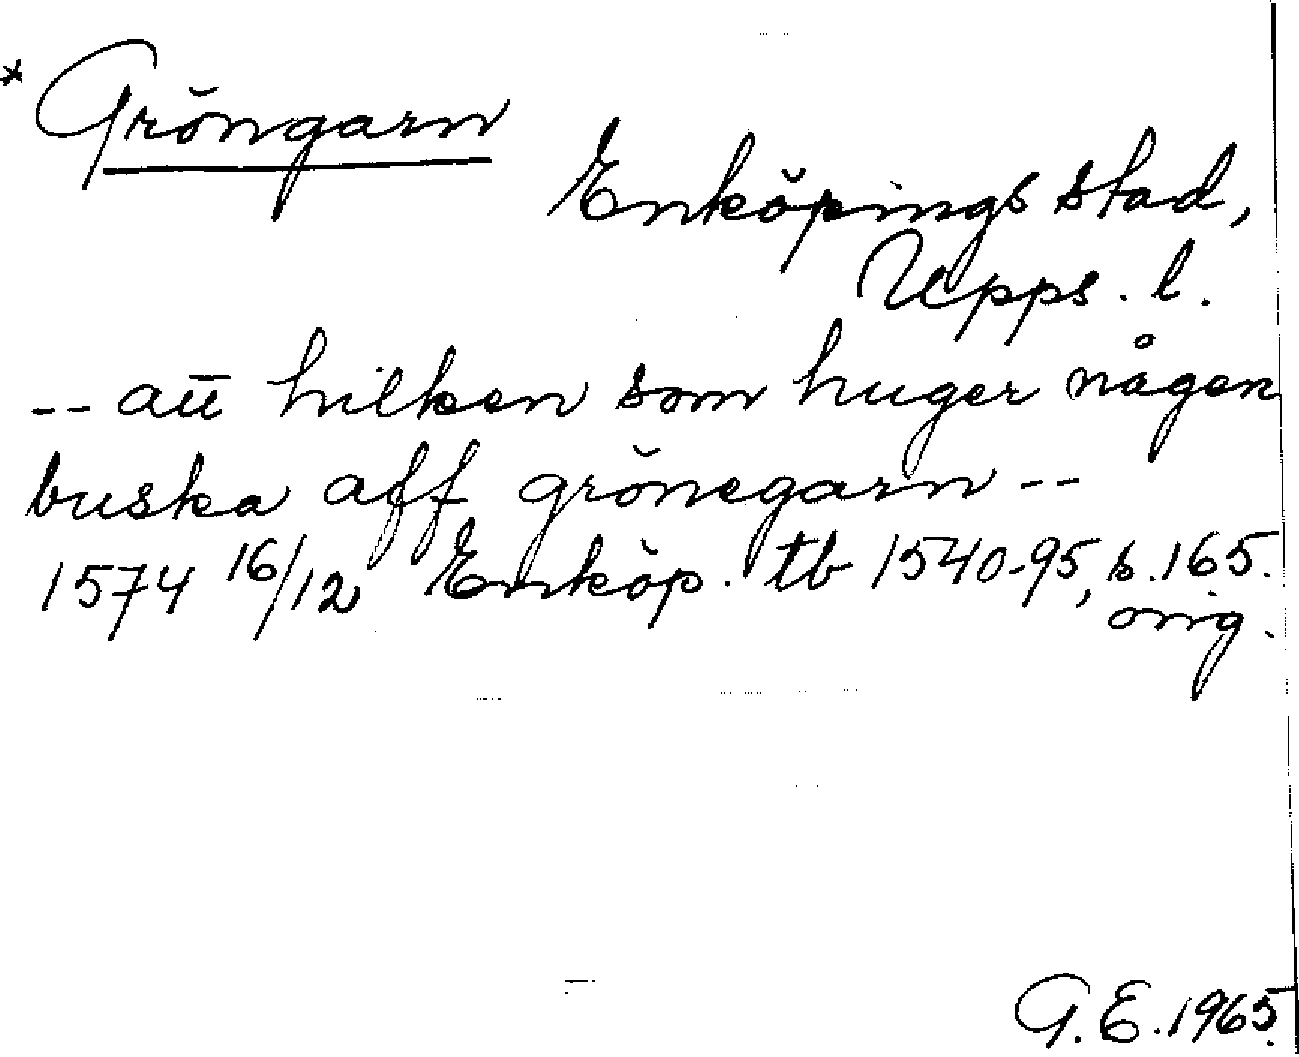 * Gröngarn
Enköpings stad,
Upps. l.
-- att hilken som huger någen
buska aff grönegarn --
1574 16/12 Enköp. tb 1540-95, s. 165.
orig.
G. E. 1965.